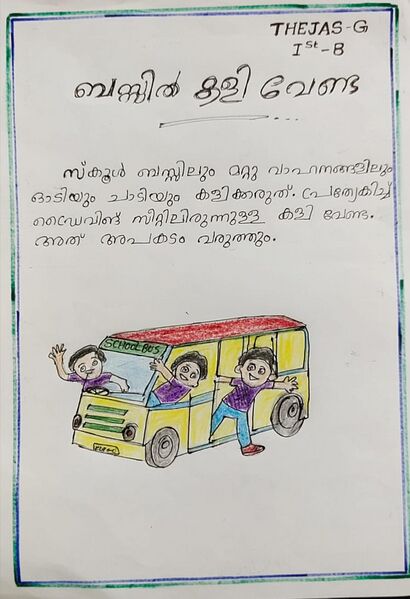 THEJAS-G
Ist-B
ബസ്സിൽ കളി വേണ്ട
സ്കൂൾ ബസ്സിലും മറ്റു വാഹനങ്ങളിലും
ഓടിയും ചാടിയും കളിക്കരുത്. പ്രത്യേകിച്ച്
ഡ്രൈവിങ് സീറ്റിലിരുന്നുള്ള കളി വേണ്ട.
അത് അപകടം വരുത്തും.
SCHOOL BUS